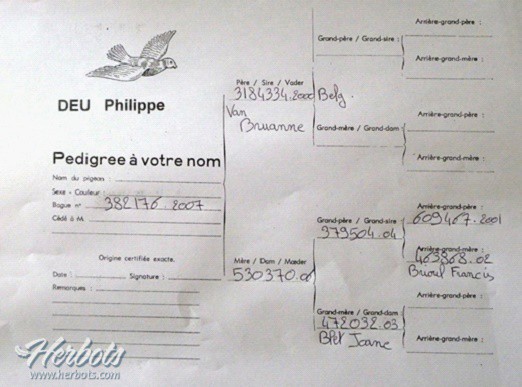 DEU Philippe
Pedigree à votre nom
Nom du pigeon :
Sexe - Couleur :
Bague n° 382176.2007
Cédé à M.
Origine certifiée exacte.
Date : Signature :
Remarques :
Père / Sire / Vader
3184334.2000 Belg.
Van
Bruanne
Mère / Dam / Mœder
530370.06
Grand-père / Grand-sire :
Grand-mère / Grand-dam :
Grand-père / Grand-sire :
379504.04
Grand-mère / Grand-dam
472032.03
Arrière-grand-père :
Arrière-grand-mère :
Arrière-grand-père :
Arrière-grand-mère :
Arrière-grand-père :
609467.2001
Arrière-grand-mère :
463868.02
Brioul Francis
Arrière-grand-père :
Arrière-grand-mère :
Herbots
www.herbots.com